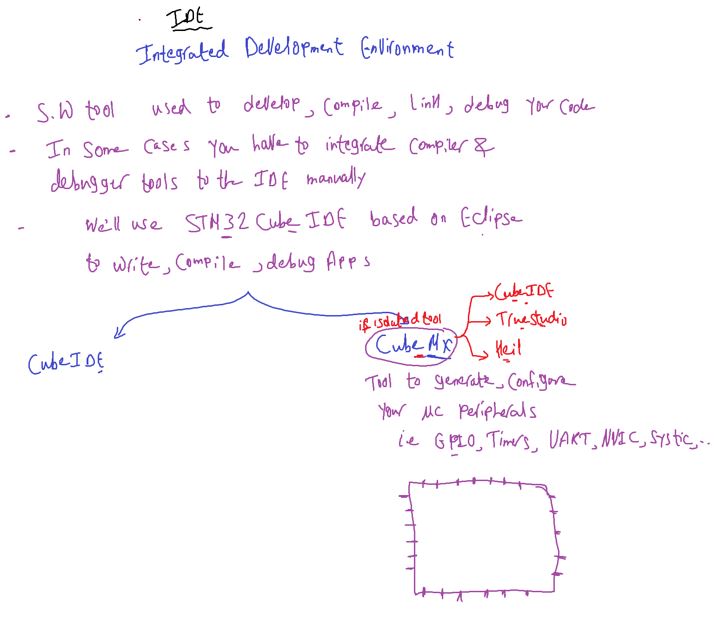 IDE
Integrated Development Environment
- S.W tool used to develop, Compile, link, debug your Code
- In Some Cases you have to integrate Compiler &
debugger tools to the IDE manually
- We'll use STM32 Cube IDE based on Eclipse
to write, Compile, debug Apps
CubeIDE
if isolated tool
CubeMx
CubeIDE
Truestudio
Keil
Tool to generate, Configure
Your MC Peripherals
i.e GPIO, Timers, UART, NVIC, Systic, ..